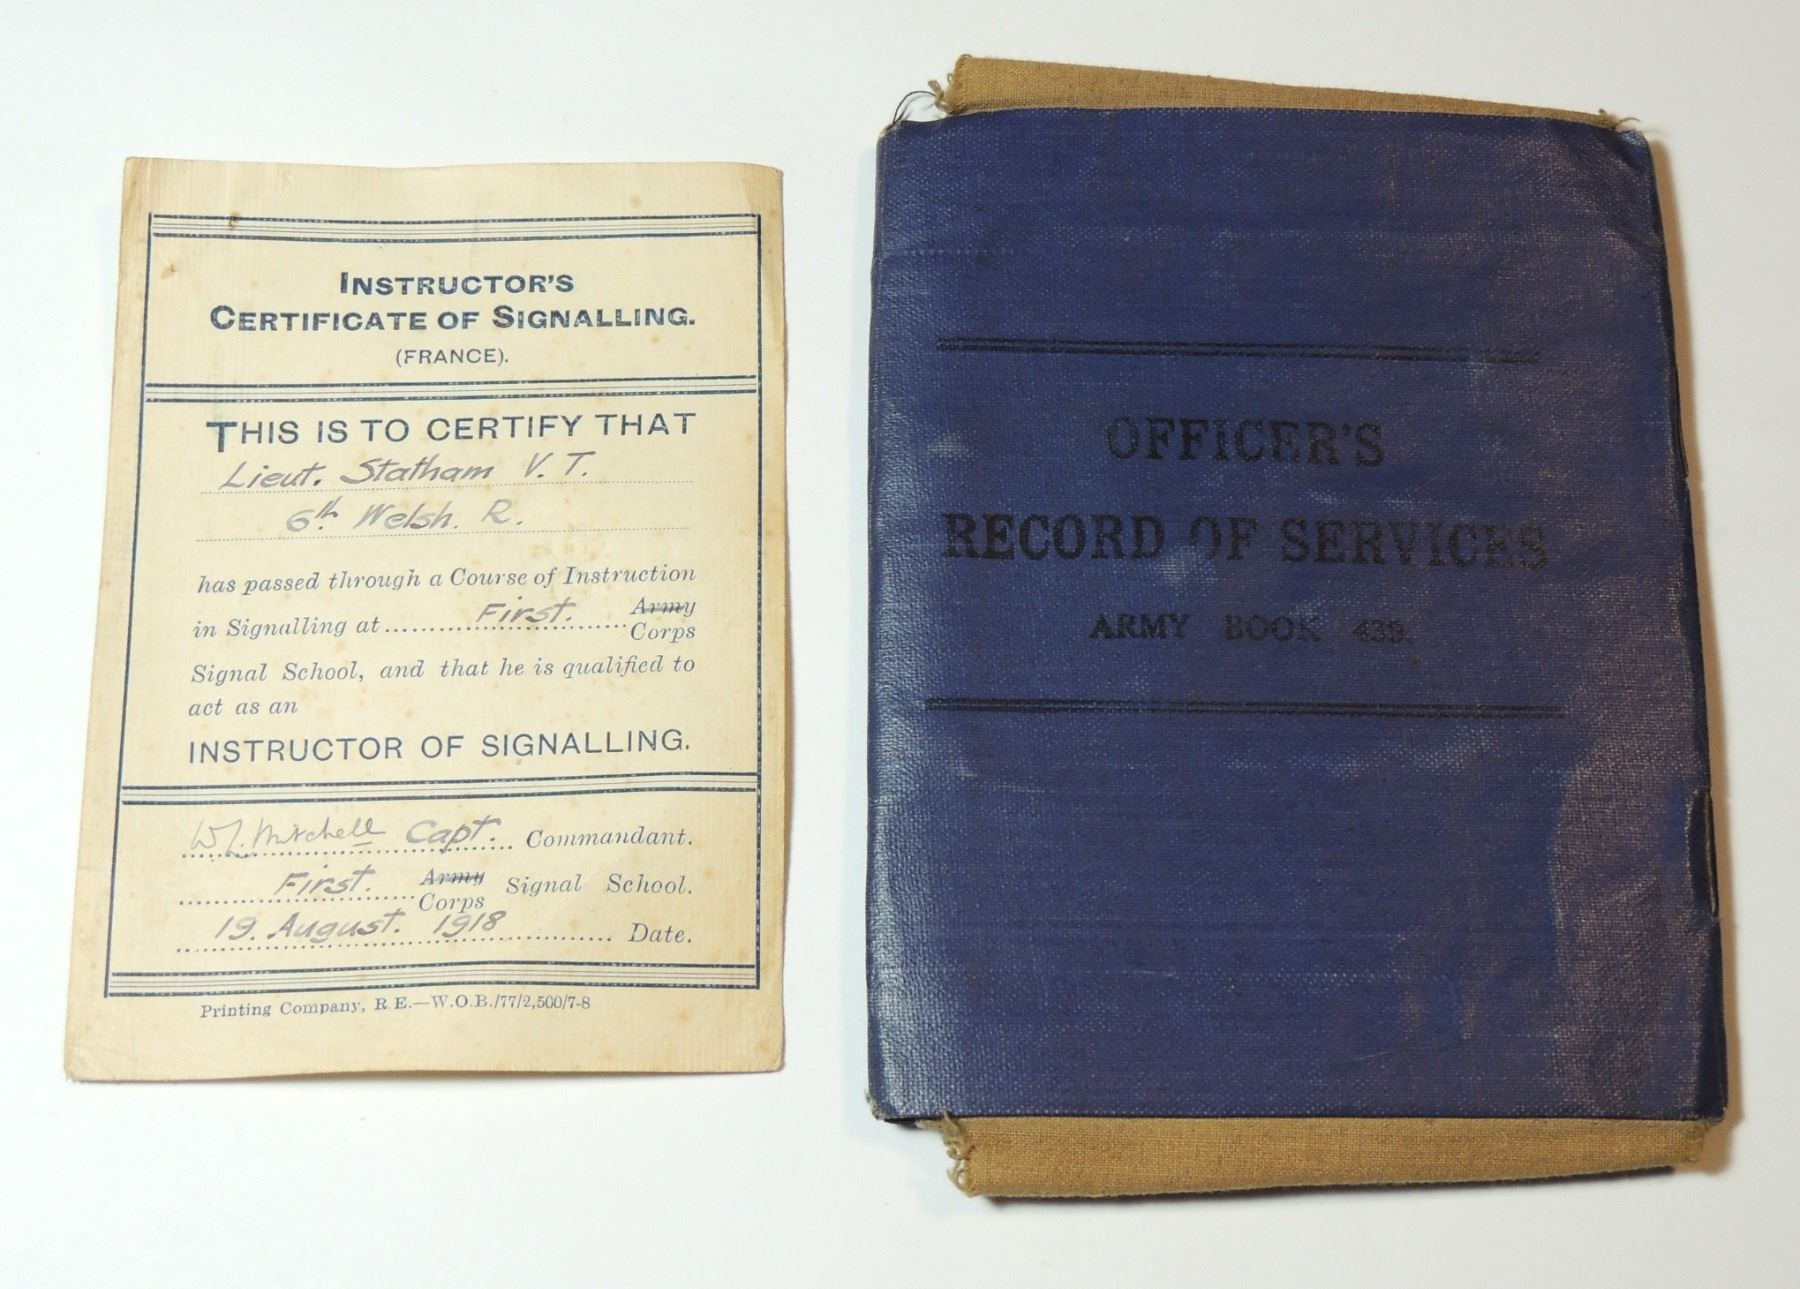 INSTRUCTOR'S
CERTIFICATE OF SIGNALLING.
(FRANCE).
THIS IS TO CERTIFY THAT
Lieut. Statham V. T.
6th Welsh. R.
has passed through a Course of Instruction
in Signalling at First. Army
Corps
Signal School, and that he is qualified to
act as an
INSTRUCTOR OF SIGNALLING.
W. J. Mitchell Capt. Commandant.
First. Army Signal School.
Corps
19. August. 1918 Date.
Printing Company, R.E.—W.O.B./77/2,500/7-8
OFFICER'S
RECORD OF SERVICES
ARMY BOOK 439.